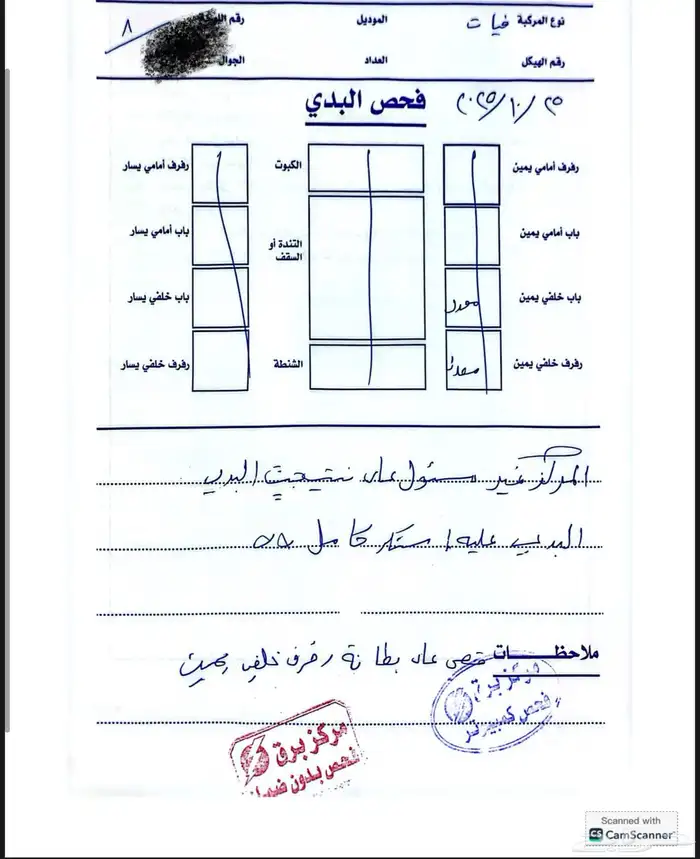 نوع المركبة فيات الموديل رقم ٨
رقم الهيكل العداد الجوال
فحص البدي ٢٠٢٥/١٠/٢٥
رفرف أمامي يمين الكبوت رفرف أمامي يسار
باب أمامي يمين التندة أو السقف باب أمامي يسار
باب خلفي يمين معدل باب خلفي يسار
رفرف خلفي يمين معدل الشنطة رفرف خلفي يسار
المركز غير مسئول على نتيجة البدي
البدي عليه استكر كامل
ملاحظات قص على بطانة رفرف خلفي يمين
مركز برق
فحص كمبيوتر
مركز برق
فحص بدون ضمان
Scanned with
CS CamScanner